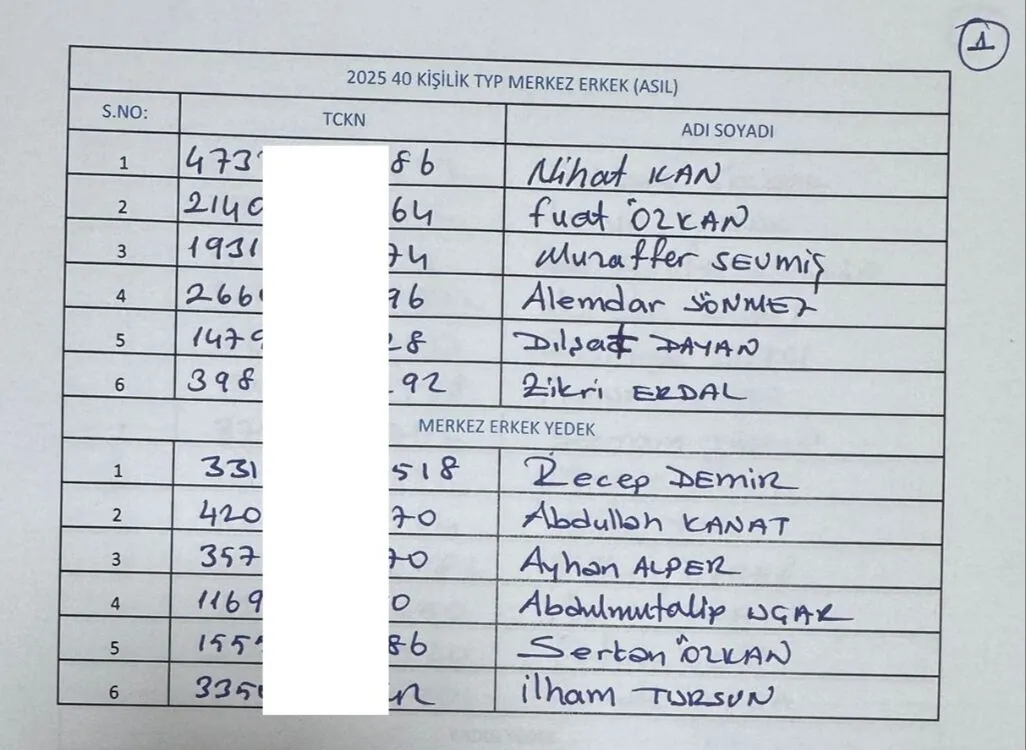 1
2025 40 KİŞİLİK TYP MERKEZ ERKEK (ASIL)
S.NO: TCKN ADI SOYADI
1 473 86 Nihat KAN
2 2140 64 fuat ÖZKAN
3 1931 74 Muzaffer SEVMİŞ
4 266 96 Alemdar SÖNMEZ
5 1479 28 Dilşat DAYAN
6 398 92 Zikri ERDAL
MERKEZ ERKEK YEDEK
1 331 518 Recep DEMİR
2 420 70 Abdullah KANAT
3 357 70 Ayhan ALPER
4 1169 0 Abdulmutalip UÇAR
5 155 86 Sertan ÖZKAN
6 335 İlham TURSUN